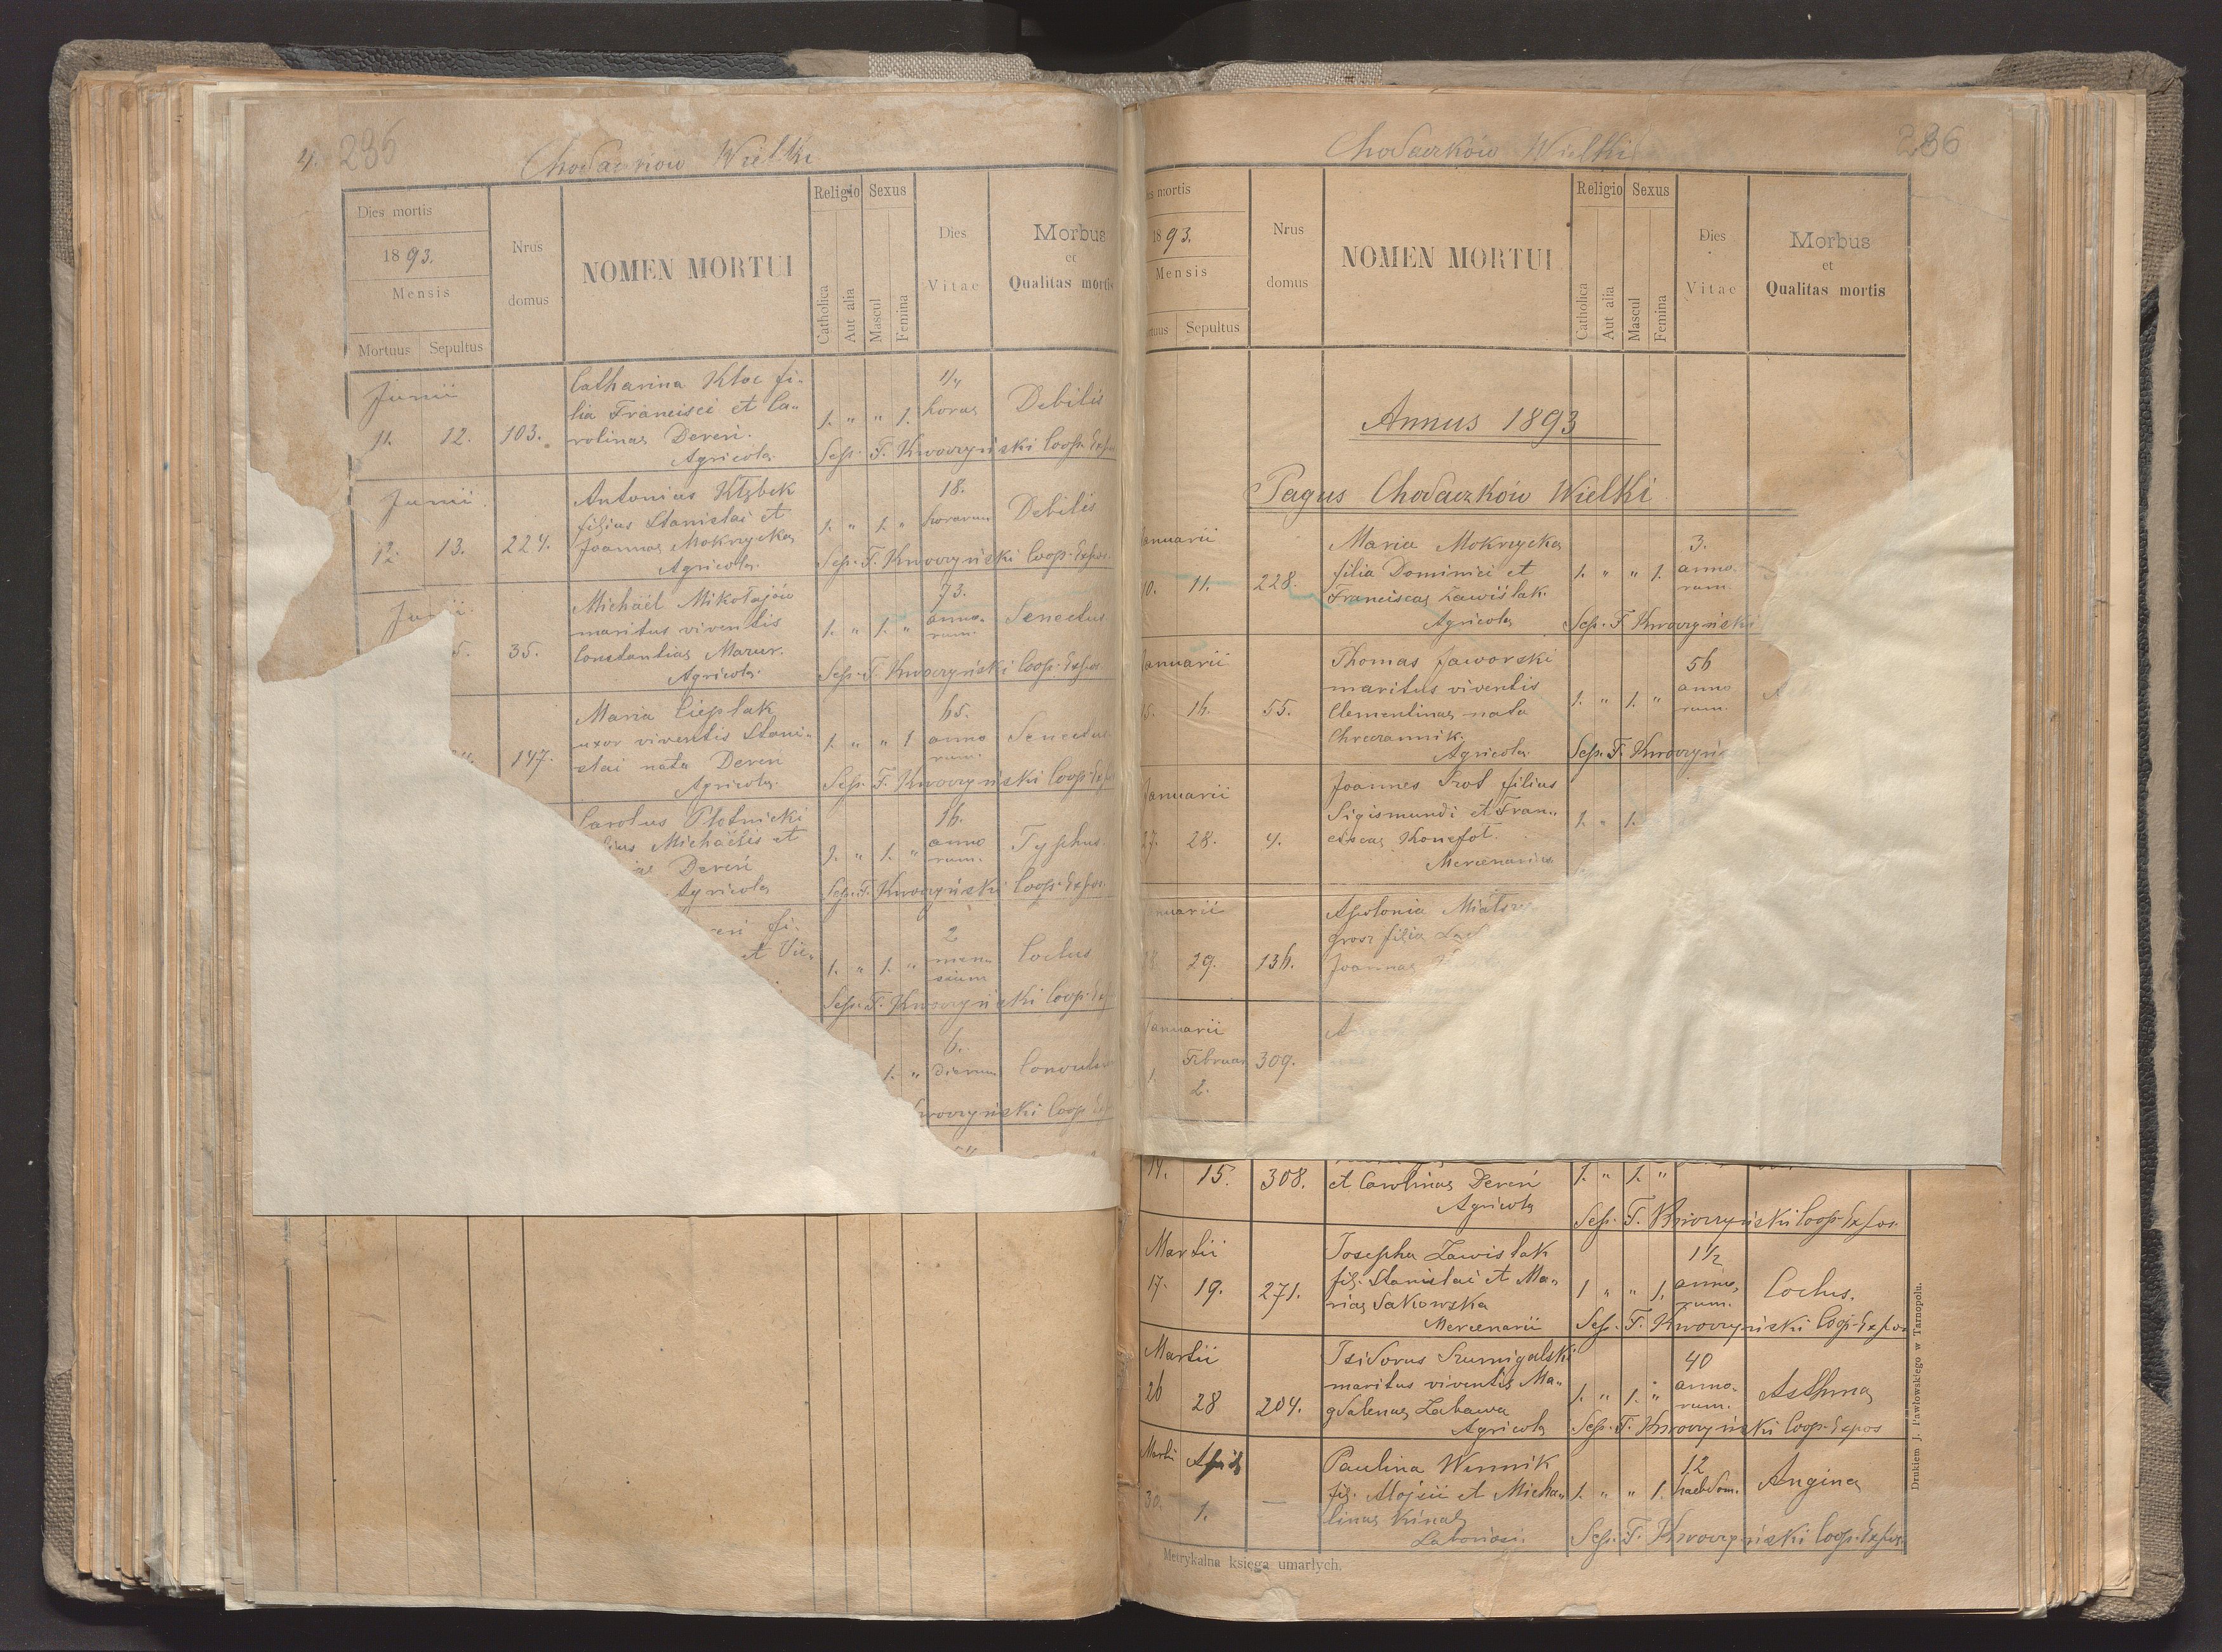 4. 236
Chodaczków Wielki
Dies mortis
1893.
Mensis
Mortuus Sepultus
Nrus
domus
NOMEN MORTUI
Religio
Catholica
Aut alia
Sexus
Mascul
Femina
Dies
Vitae
Morbus
et
Qualitas mortis
Junii
11. 12. 103.
Catharina Kloc fi-
lia Francisci et Ca-
rolinae Dereń.
Agricola
1. " " 1.
1/4
horae
Debilis
Sep. F. Kwoczyński Coop. Expo
Junii.
12. 13. 224.
Antonius
filius Stanislai et
Joannae Mokrzycka
Agricola.
1. " 1. "
18.
horarum
Debilis
Sep. F. Kwoczyński Coop. Expos.
Junii.
5. 35.
Michaël Mikołajów
maritus viventis
Constantiae Mazur.
Agricola.
1. " 1. "
73.
anno-
rum.
Senectus
Sep. F. Kwoczyński Coop. Expos.
147.
Maria Cieplak
uxor viventis Stani-
slai nata Dereń
Agricola.
1. " " 1
65.
anno
rum.
Senectus
Sep. F. Kwoczyński Coop. Exp
Carolus Płotnicki
lius Michaëlis et
Dereń
Agricola
1. " 1. "
16.
anno
rum.
Typhus.
Sep. F. Kwoczyński Coop. Expos.
fi-
et Vic-
1. " 1. "
2
men-
sium
Coctus
Sep. F. Kwoczyński Coop. Exp
1. "
6.
dierum
Convuls
woczyński Coop. Exp
Chodaczków Wielki
236
es mortis
1893.
Mensis
rtuus Sepultus
Nrus
domus
NOMEN MORTUI
Religio
Catholica
Aut alia
Sexus
Mascul
Femina
Dies
Vitae
Morbus
et
Qualitas mortis
Annus 1893
Pagus Chodaczków Wielki
Januarii
10. 11. 228.
Maria Mokrzycka
filia Dominici et
Franciscae Zawiślak.
Agricola
1. " " 1.
3.
anno-
rum.
Sep. F. Kwoczyński
Januarii
5. 16. 55.
Thomas Jaworski
maritus viventis
Clementinae nata
Chrczannik.
Agricola.
1. " 1. "
56
anno
rum.
Sep. F. Kwoczyńs
Januarii
27. 28. 4.
Joannes Szot filius
Sigismundi et Fran-
ciscae Konefot.
Mercenarius
1. " 1.
nuarii
29. 136.
Apolonia
filia
Joannae
Januarii
Februar 309.
1. 2.
14. 15. 308.
et Carolinae Dereń
Agricola
1. " 1. "
Sep. F. Kwoczyński Coop. Expos.
Martii
17. 19. 271.
Josepha Zawiślak
fil. Stanislai et Ma-
riae Sakowska
Mercenarii
1 " " 1.
1 1/2
anno-
rum.
Coctus.
Sep. F. Kwoczyński Coop. Expos
Martii
26 28 204.
Isidorus Szumigalski
maritus viventis Ma-
gdalenae Zabawa
Agricola
1. " 1. "
40
anno-
rum.
Asthma
Sep. F. Kwoczyński Coop. Expos
Martii April
30. 1. —
Paulina Winnik
fil. Alojsii et Micha-
linae Kinal
1. " " 1.
12
hebdom.
Angina
Sep. F. Kwoczyński Coop. Expos.
Metrykalna księga umarłych.
Drukiem J. Pawłowskiego w Tarnopolu.